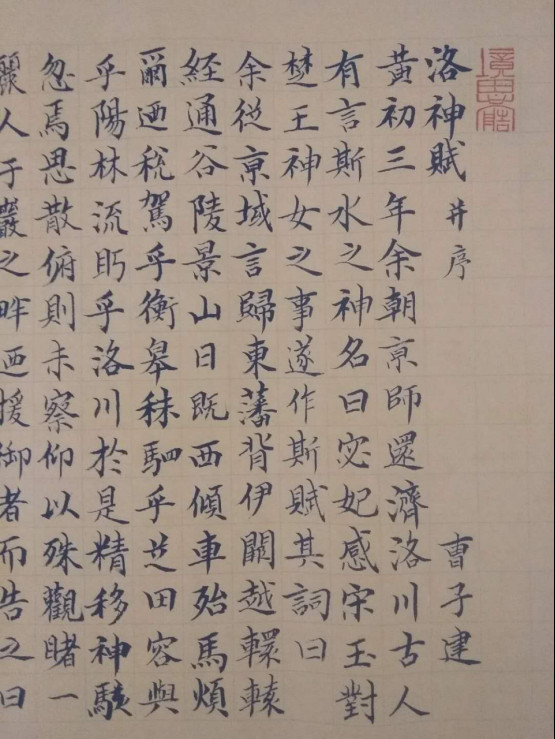 洛神賦 并序 曹子建
黃初三年余朝京師還濟洛川古人
有言斯水之神名曰宓妃感宋玉對
楚王神女之事遂作斯賦其詞曰
余從京域言歸東藩背伊闕越轘轅
經通谷陵景山日既西傾車殆馬煩
爾迺稅駕乎衡皋秣駟乎芝田容與
乎陽林流眄乎洛川於是精移神駭
忽焉思散俯則未察仰以殊觀睹一
麗人于巖之畔迺援御者而告之曰